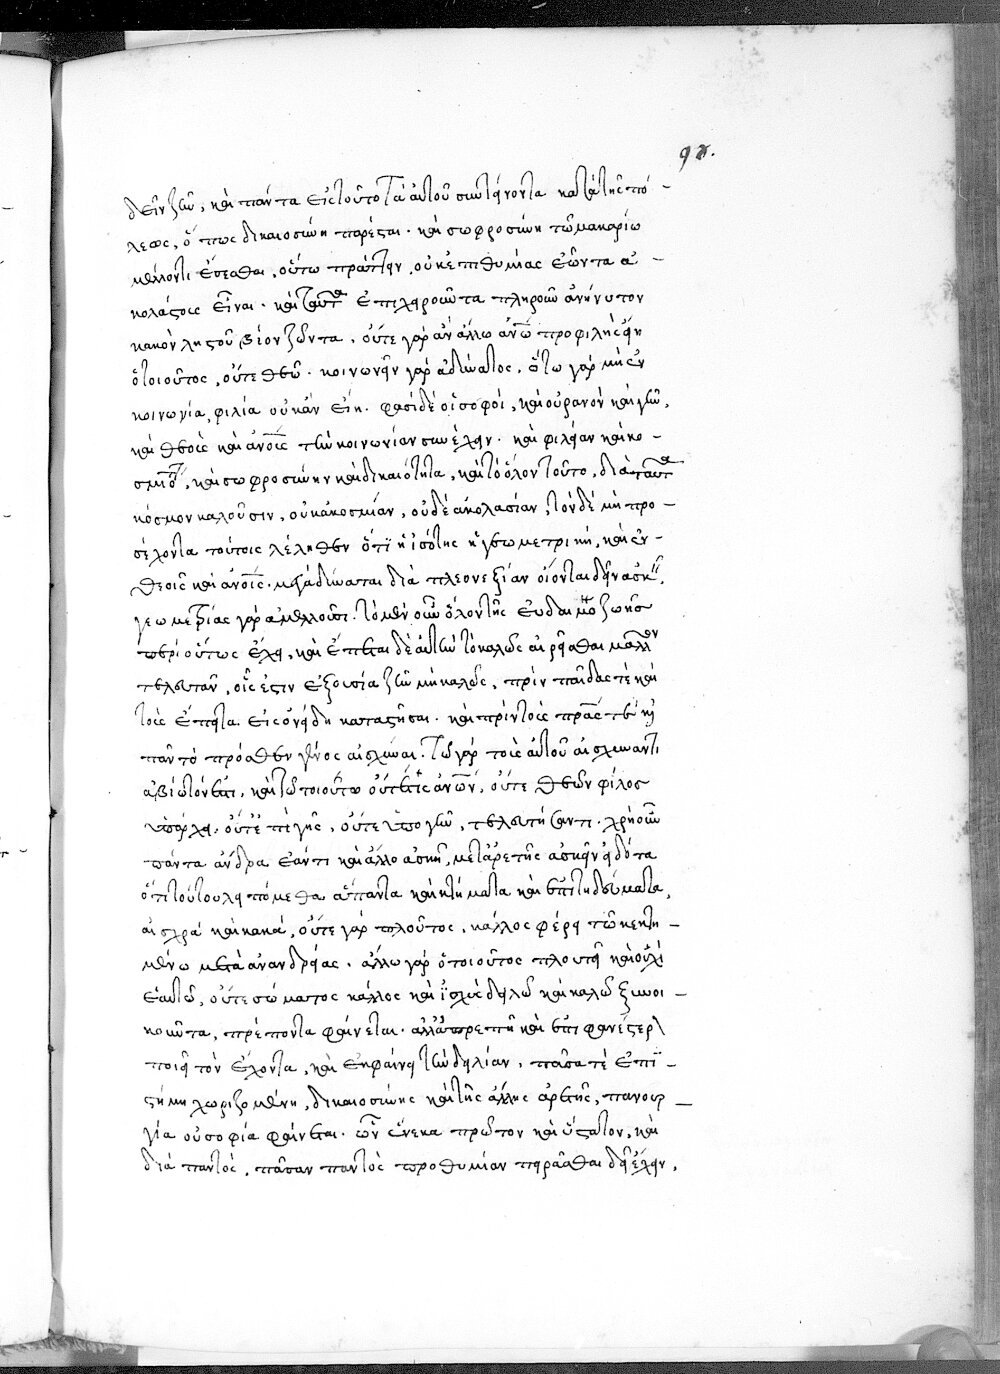 92.
δεῖν ζῆν, καὶ πάντα εἰς τοῦτο τὰ αὑτοῦ συντείνοντα καὶ τὰ τῆς πό-
λεως, ὅπως δικαιοσύνη παρέσται. καὶ σωφροσύνη τῷ μακαρίῳ
μέλλοντι ἔσεσθαι, οὕτω πράττειν, οὐκ ἐπιθυμίας ἐῶντα ἀ-
κολάστους εἶναι. καὶ ταύτας ἐπιχειροῦντα πληροῦν ἀνήνυτον
κακὸν ληστοῦ βίον ζῶντα. οὔτε γὰρ ἂν ἄλλῳ ἀνθρώπῳ προσφιλὴς εἴη
ὁ τοιοῦτος, οὔτε θεῷ. κοινωνεῖν γὰρ ἀδύνατος, ὅτῳ γὰρ μὴ ἐν
κοινωνία, φιλία οὐκ ἂν εἴη. φασὶ δὲ οἱ σοφοί, καὶ οὐρανὸν καὶ γῆν,
καὶ θεοὺς καὶ ἀνθρώπους τὴν κοινωνίαν συνέχειν. καὶ φιλίαν καὶ κο-
σμιότητα, καὶ σωφροσύνην καὶ δικαιότητα, καὶ τὸ ὅλον τοῦτο, διὰ ταῦτα
κόσμον καλοῦσιν, οὐκ ἀκοσμίαν, οὐδὲ ἀκολασίαν, τὸν δὲ μὴ προ-
σέχοντα τούτοις λέληθεν ὅτι ἡ ἰσότης ἡ γεωμετρική, καὶ ἐν
θεοῖς καὶ ἀνθρώποις μέγα δύναται διὰ πλεονεξίαν οἴονται δεῖν ἀσκεῖν,
γεωμετρίας γὰρ ἀμελοῦσι. τὸ μὲν οὖν ὅλον τῆς εὐδαίμονος ζωῆς
πέρι οὕτως ἔχει, καὶ ἕπεται δὲ αὐτῇ τὸ καλῶς αἱρεῖσθαι μᾶλλον
τελευτᾶν, οἷς ἔστιν ἐξουσία ζῆν μὴ καλῶς, πρὶν παῖδάς τε καὶ
τοὺς ἔπειτα εἰς ὀνείδη καταστῆσαι. καὶ πρὶν τοὺς πατέρας τε καὶ
πᾶν τὸ πρόσθεν γένος αἰσχῦναι. τῷ γὰρ τοὺς αὑτοῦ αἰσχύναντι
ἀβίωτόν ἐστι, καὶ τῷ τοιούτῳ οὔτέ τις ἀνθρώπων, οὔτε θεῶν φίλος
ὑπάρχει. οὔτε ἐπὶ γῆς, οὔτε ὑπὸ γῆν, τελευτήσαντι. χρὴ οὖν
πάντα ἄνδρα ἐάν τι καὶ ἄλλο ἀσκῇ, μετ' ἀρετῆς ἀσκεῖν εἰδότα
ὅτι τούτου λειπόμεθα ἅπαντα καὶ κτήματα καὶ ἐπιτηδεύματα,
αἰσχρὰ καὶ κακά, οὔτε γὰρ πλοῦτος, κάλλος φέρει τῷ κεκτη-
μένῳ μετὰ ἀνανδρείας. ἄλλῳ γὰρ ὁ τοιοῦτος πλουτεῖ καὶ οὐχὶ
ἑαυτῷ, οὔτε σώματος κάλλος καὶ ἰσχὺς δειλῷ καὶ καλῷ ξυνοι-
κοῦντα, πρέποντα φαίνεται. ἀλλὰ ἀπρεπῆ καὶ ἐπιφανέστερον
ποιεῖ τὸν ἔχοντα, καὶ ἐκφαίνει τὴν δειλίαν, πᾶσά τε ἐπι-
στήμη χωριζομένη, δικαιοσύνης καὶ τῆς ἄλλης ἀρετῆς, πανουρ-
γία οὐ σοφία φαίνεται. ὧν ἕνεκα πρῶτον καὶ ὕστατον, καὶ
διὰ παντός, πᾶσαν παντὸς προθυμίαν πειρᾶσθαι δεῖ ἔχειν,